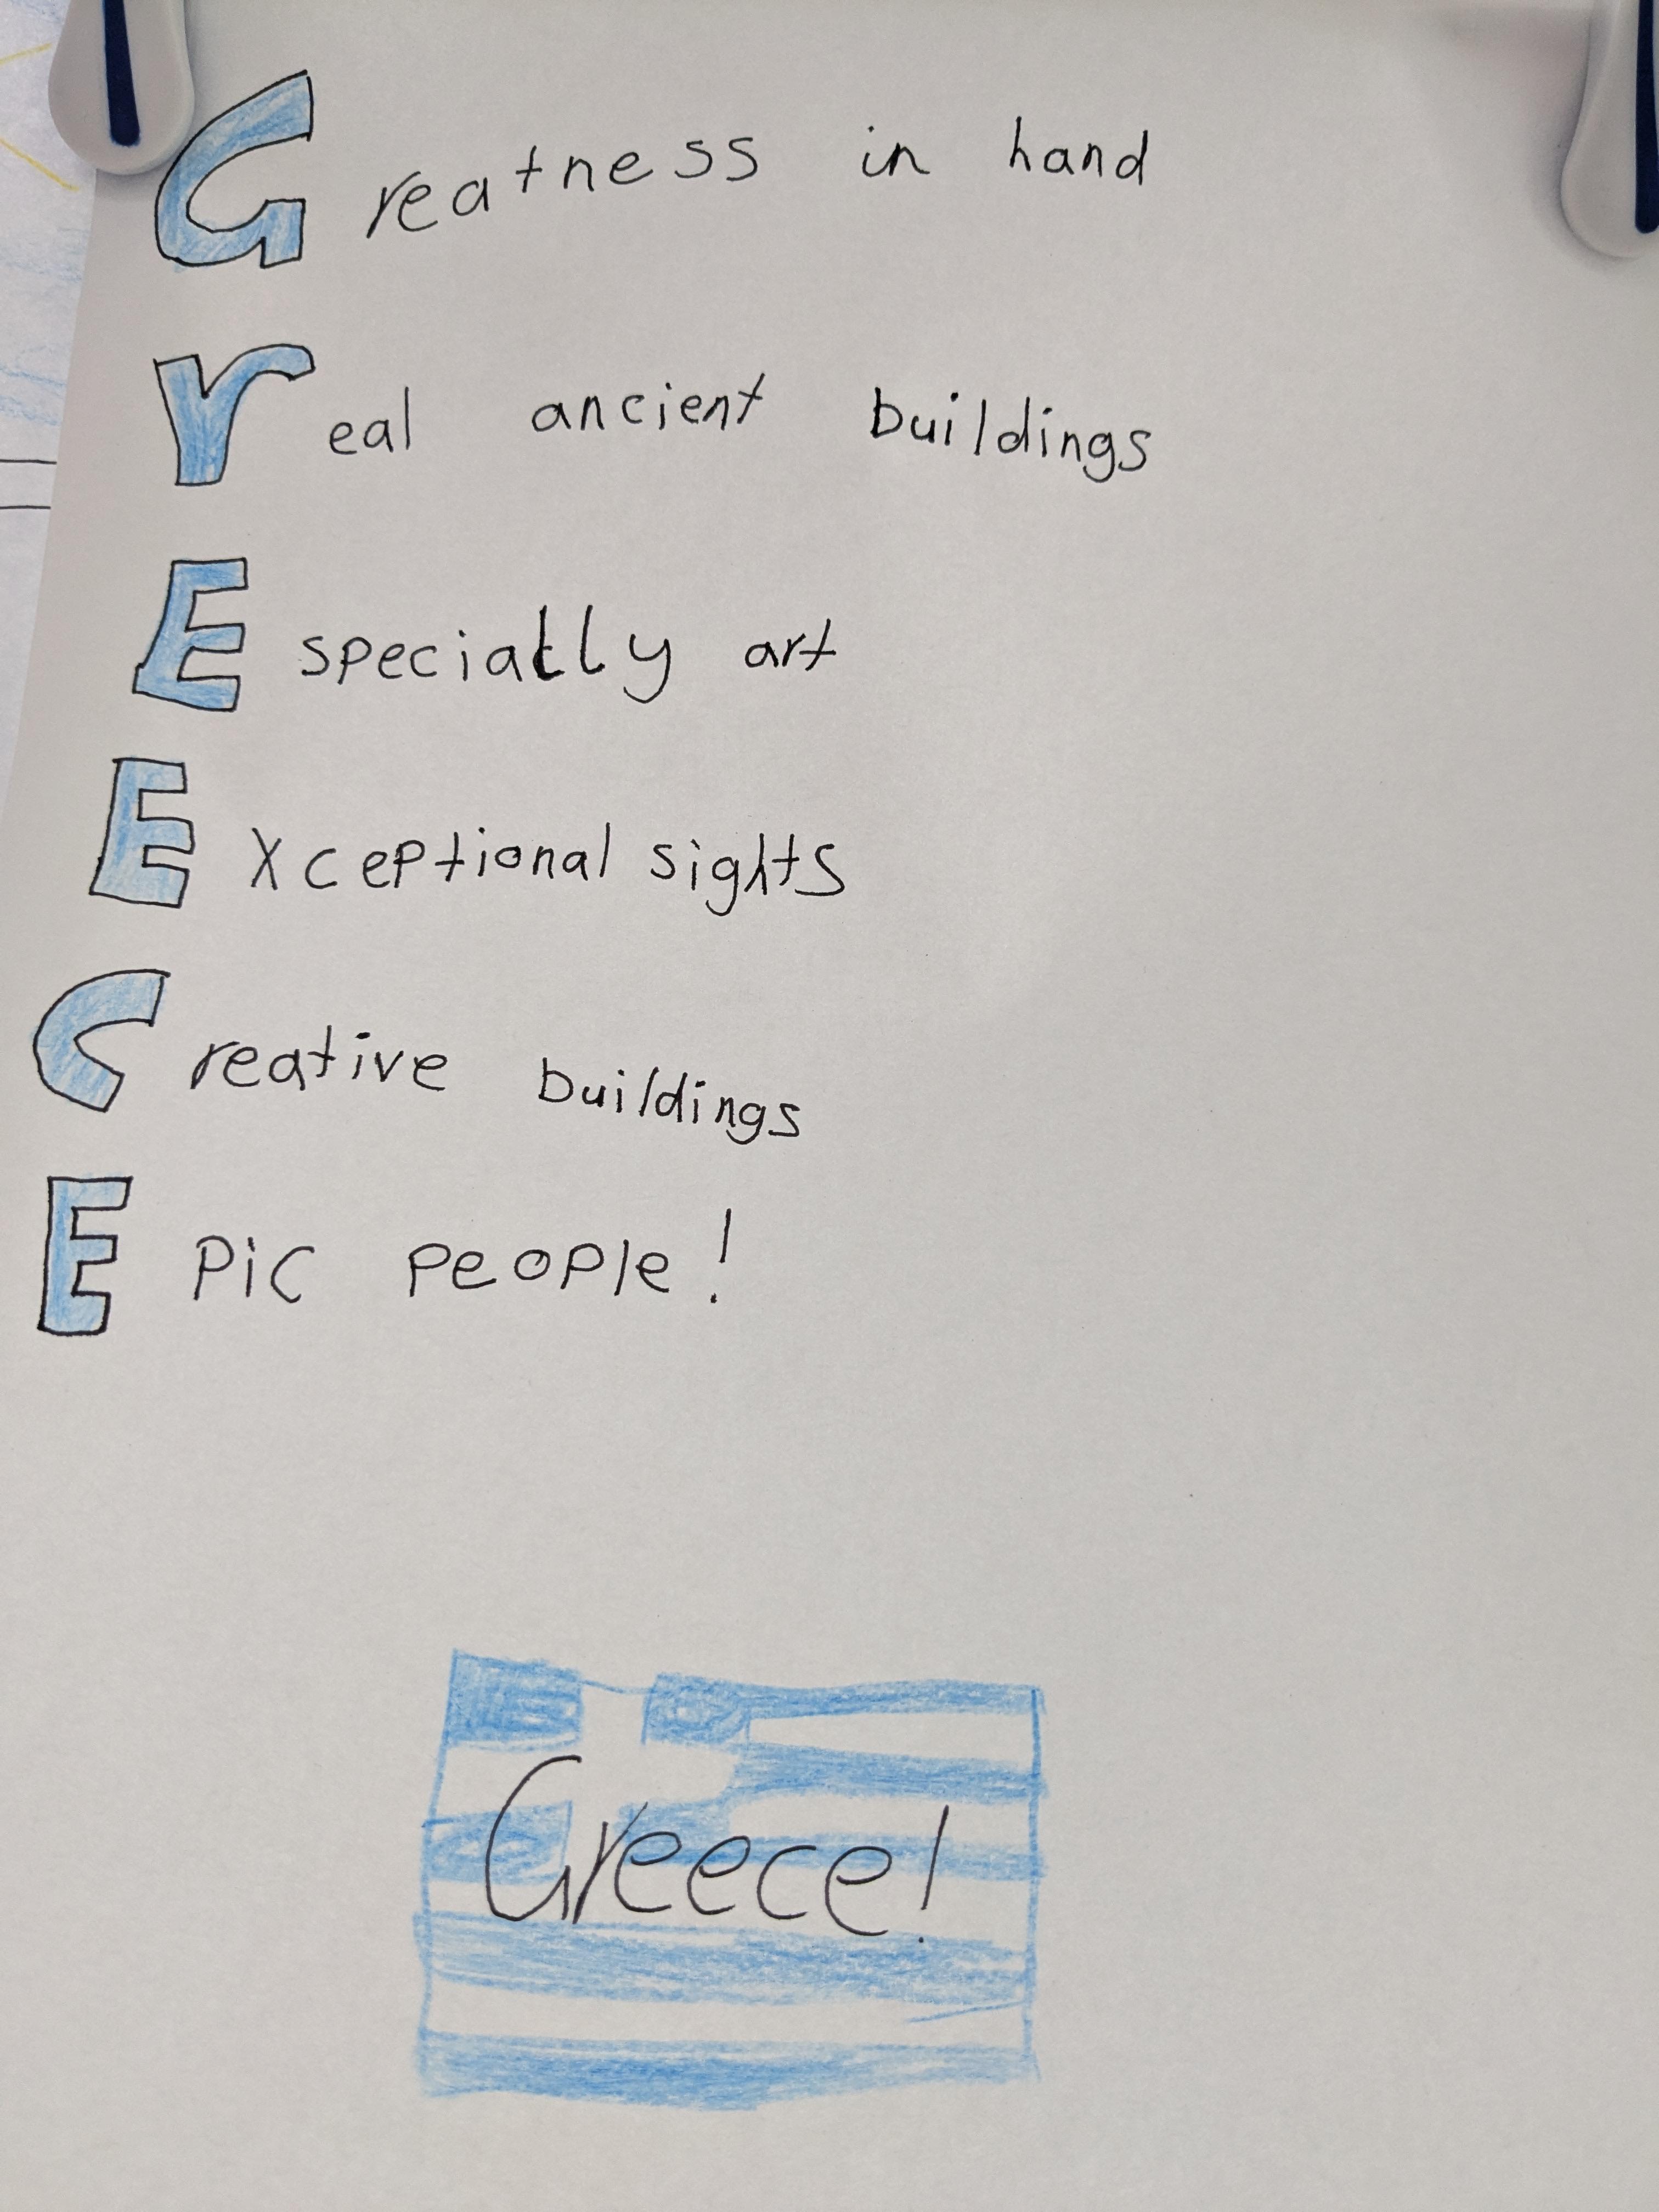 Greatness in hand
real ancient buildings
Especially art
Exceptional sights
Creative buildings
Epic people!
Greece!